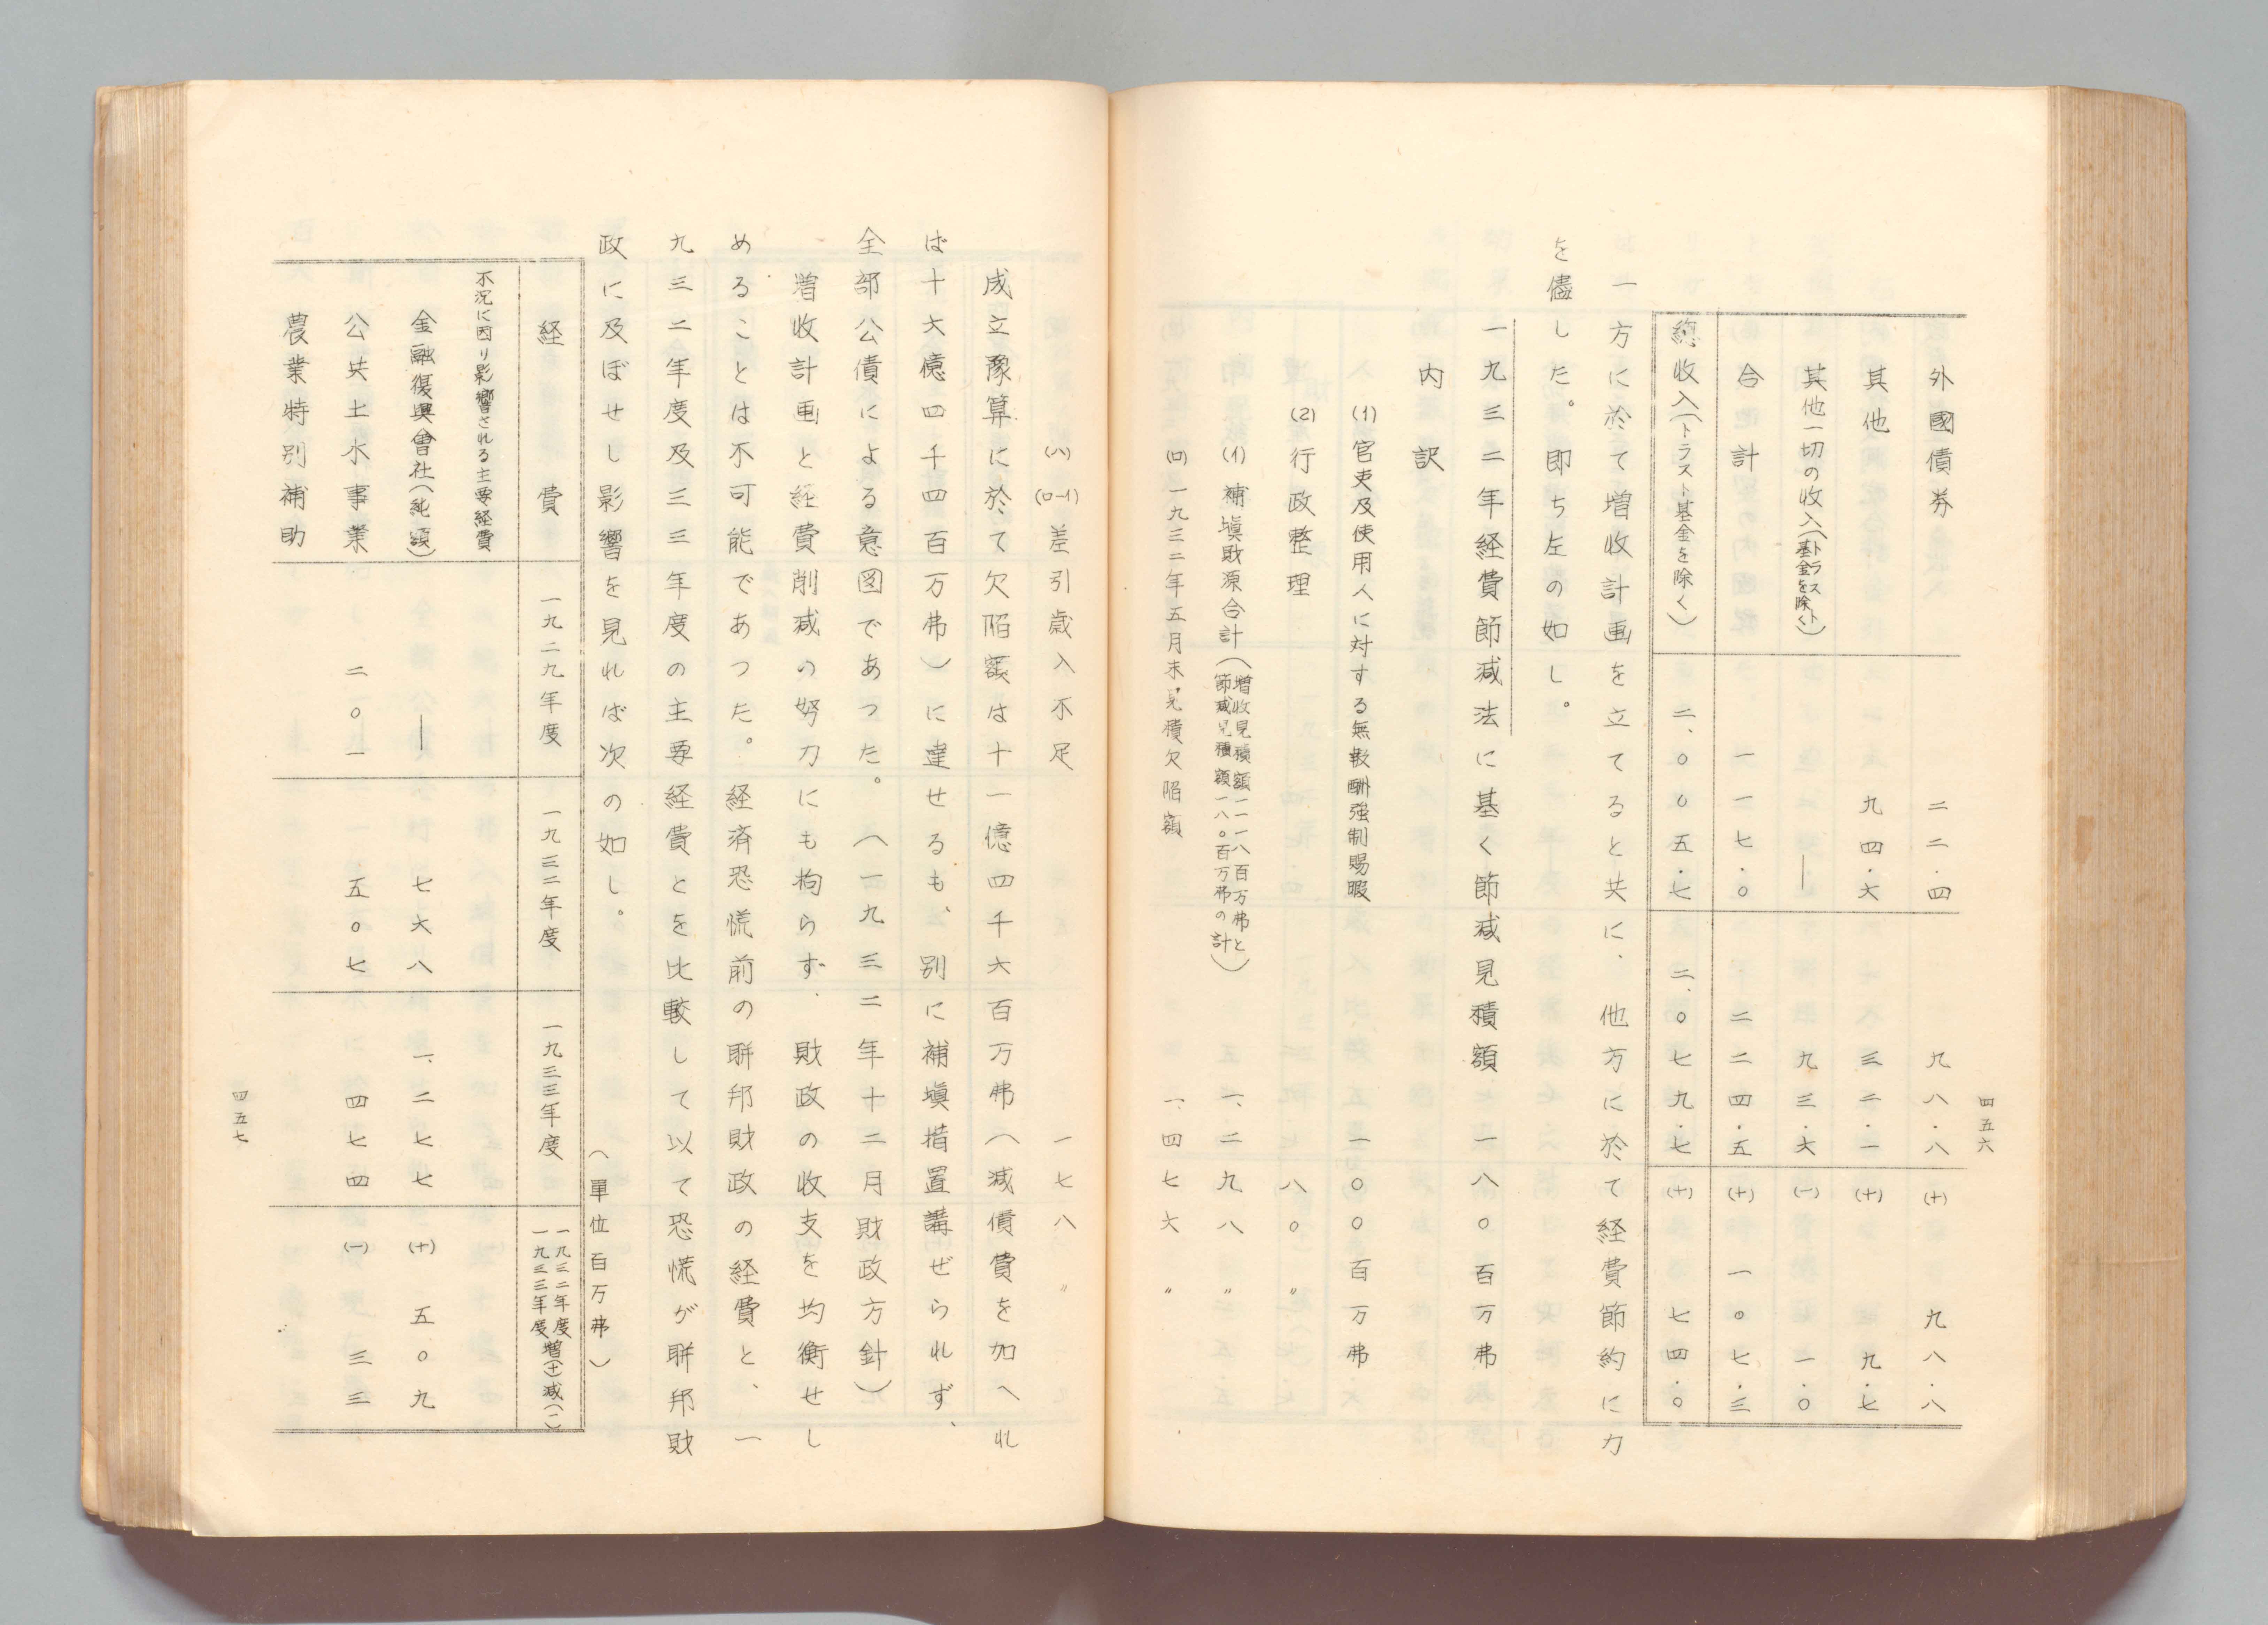 四五六
外國債券　二二・四　九八・八　(十)　九八・八
其他　九四・六　三二・一　(十)　九・七
其他一切の收入（トラスト基金を除く）　―　九三・六　(一)　一・〇
合計　一一七・〇　二二四・五　(十)　一〇七・三
總收入（トラスト基金を除く）　二、〇〇五・七　二、〇七九・七　(十)　七四・〇
一方に於て增收計画を立てると共に、他方に於て経費節約に力
を儘した。即ち左の如し。
一九三二年経費節減法に基く節減見積額　一八〇百万弗
内訳
(1)官吏及使用人に対する無報酬強制賜暇　一〇〇百万弗
(2)行政整理　八〇〃
(イ)補塡財源合計（增收見積額一一一八百万弗と節減見積額一八〇百万弗の計）　一、二九八〃
(ロ)一九三二年五月末見積欠陥額　一、四七六〃
(ハ)(ロ-イ)差引歳入不足　一七八〃
成立豫算に於て欠陥額は十一億四千六百万弗（減債費を加へれ
ば十六億四千四百万弗）に達せるも、別に補塡措置講ぜられず、
全部公債による意図であつた。（一九三二年十二月財政方針）
增收計画と経費削減の努力にも拘らず、財政の收支を均衡せし
めることは不可能であつた。経済恐慌前の聯邦財政の経費と、一
九三二年度及三三年度の主要経費とを比較して以て恐慌が聯邦財
政に及ぼせし影響を見れば次の如し。
（單位百万弗）
経費　一九二九年度　一九三二年度　一九三三年度　一九三二年度一九三三年度增(十)減(一)
不況に因り影響される主要経費
金融復興會社（純額）　―　七六八　一、二七七　(十)　五〇九
公共土木事業　二〇一　五〇七　四七四　(一)　三三
農業特別補助
四五七